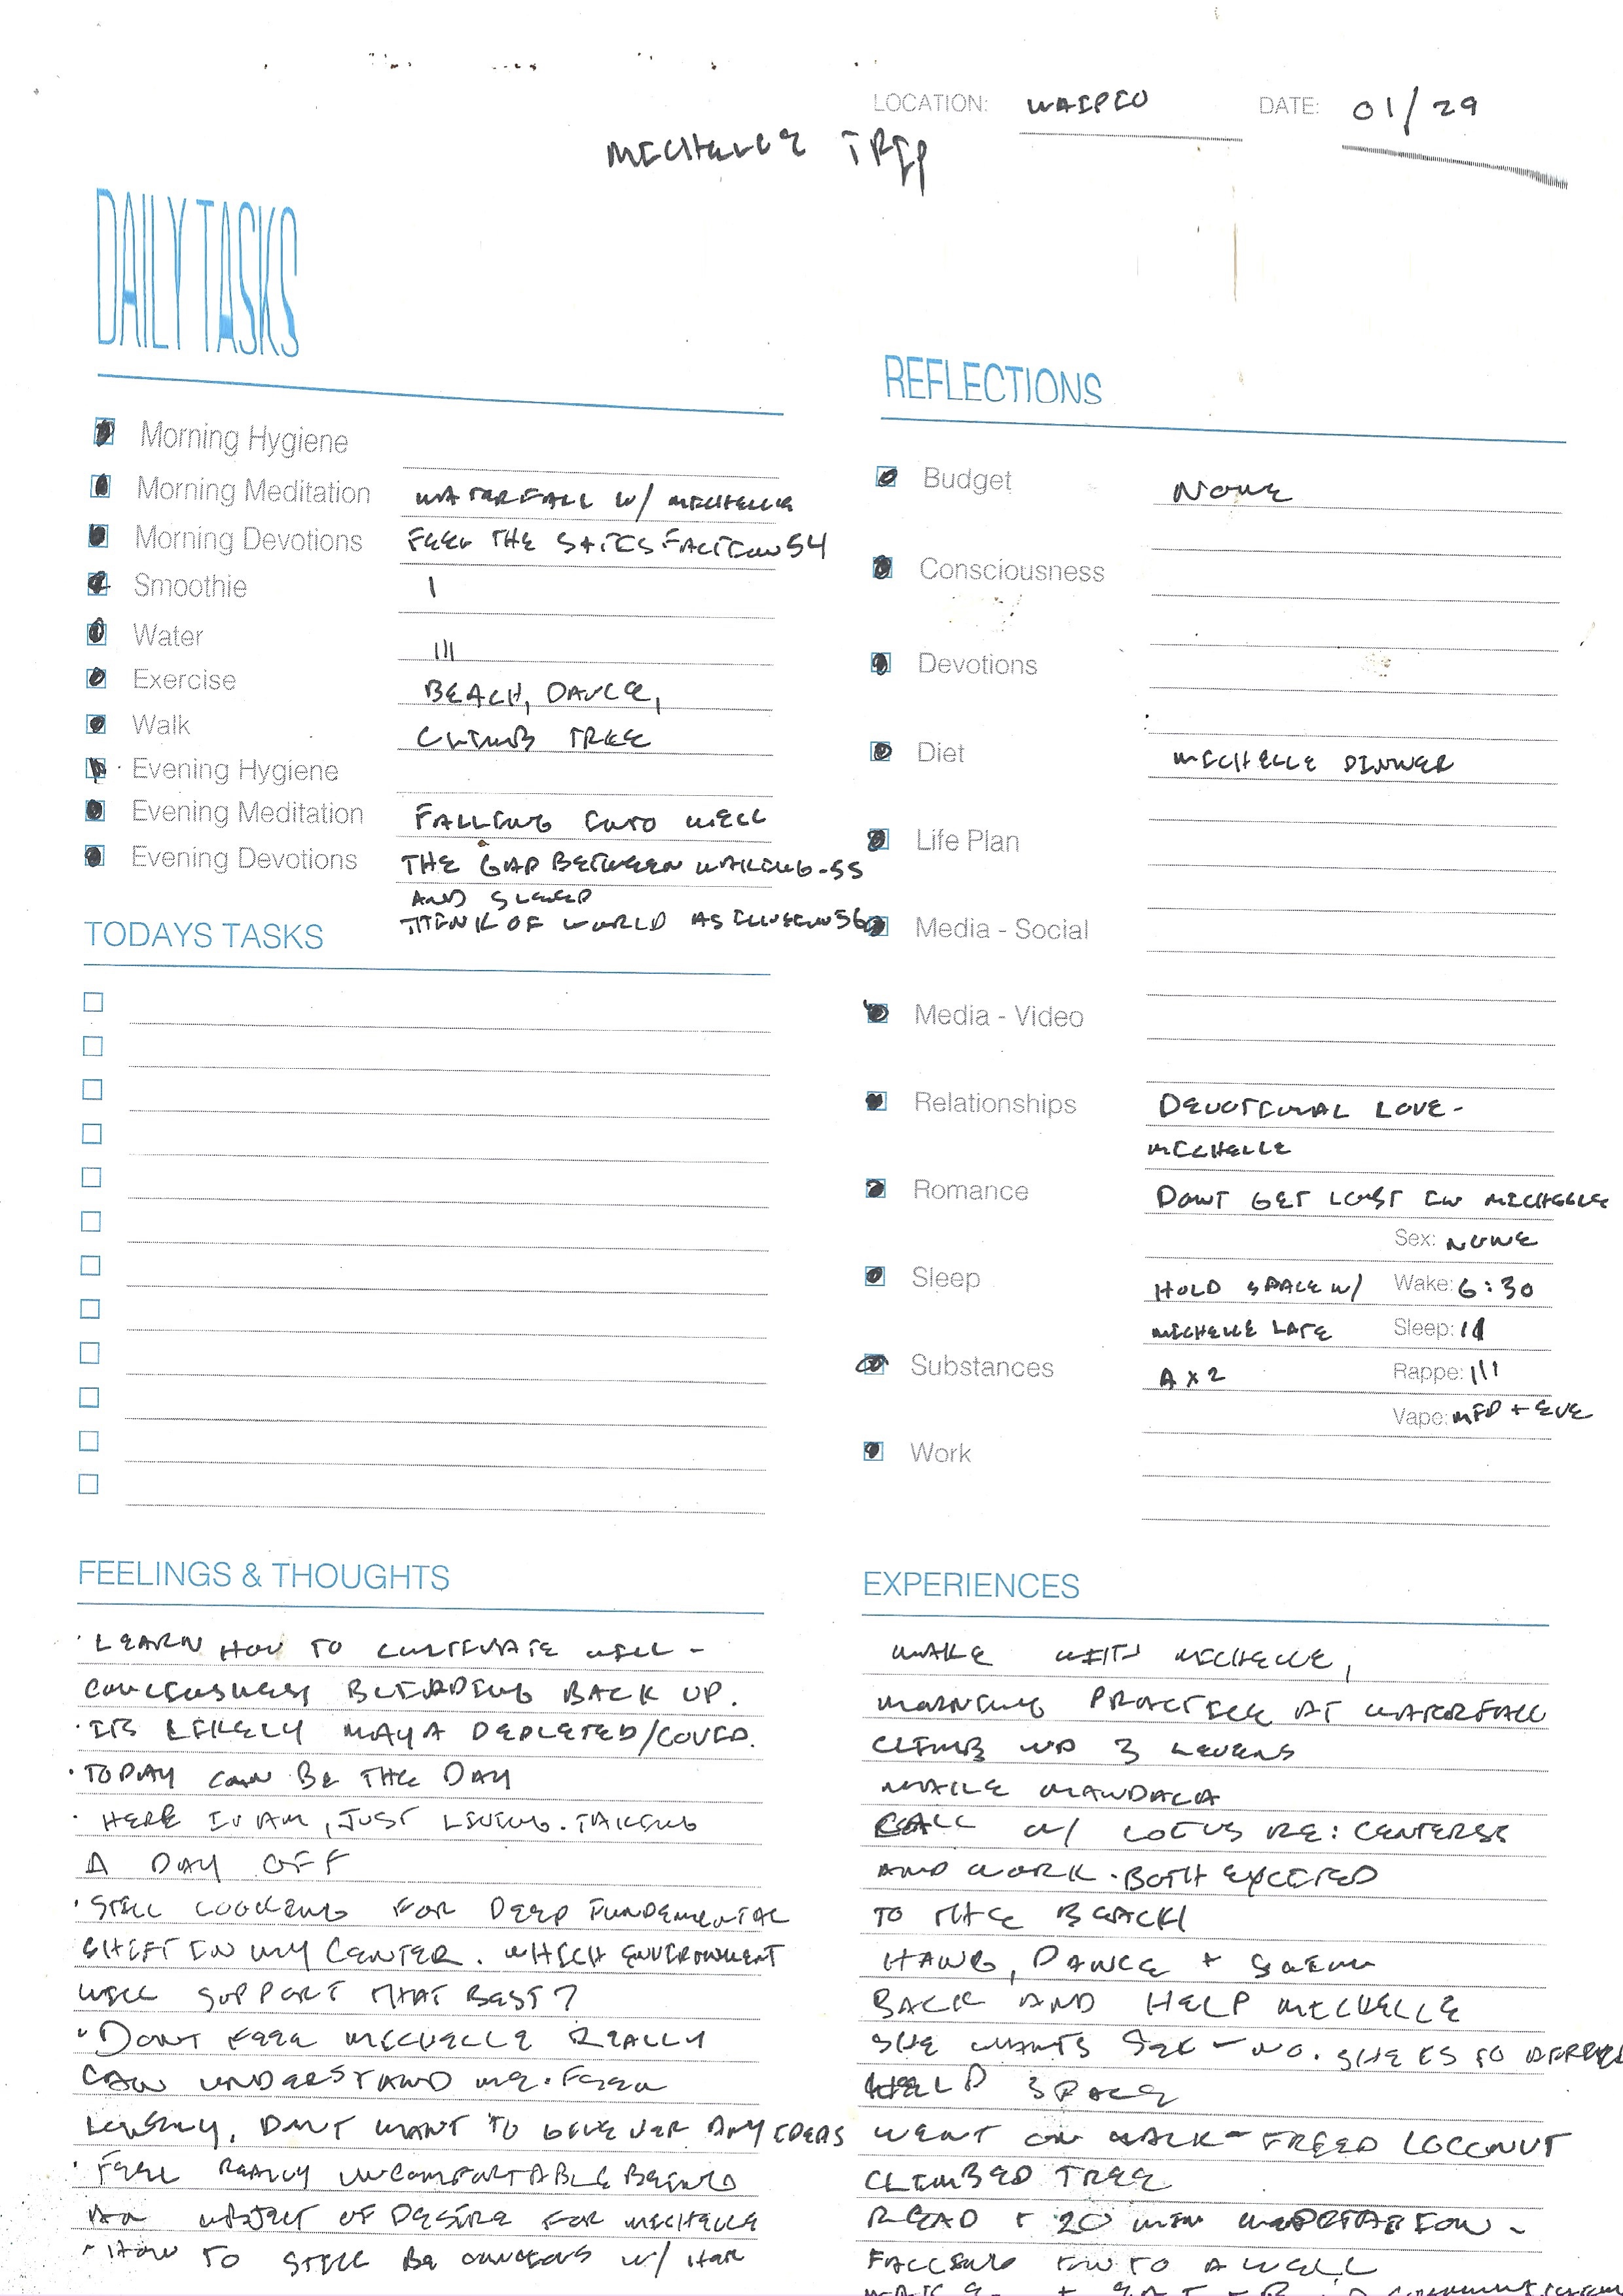 LOCATION: WAIPIO DATE: 01/29
MICHELLE TRIP
DAILY TASKS
Morning Hygiene
Morning Meditation WATERFALL W/ MICHELLE
Morning Devotions FEEL THE SATISFACTION 54
Smoothie I
Water III
Exercise BEACH, DANCE,
Walk CLIMB TREE
Evening Hygiene
Evening Meditation FALLING INTO WELL
Evening Devotions THE GAP BETWEEN WAKING-55
AND SLEEP
THINK OF WORLD AS ILLUSION 56
TODAYS TASKS
REFLECTIONS
Budget NONE
Consciousness
Devotions
Diet MICHELLE DINNER
Life Plan
Media - Social
Media - Video
Relationships DEVOTIONAL LOVE -
MICHELLE
Romance DONT GET LOST IN MICHELLE
Sex: NONE
Sleep HOLD SPACE W/ Wake: 6:30
MICHELLE LATE Sleep: 11
Substances A X 2 Rappe: III
Vape: MID + EVE
Work
FEELINGS & THOUGHTS
· LEARN HOW TO CULTIVATE WILL -
BACK UP.
· ITS LIKELY MAYA DEPLETED/COVID.
· TODAY CAN BE THE DAY
· HERE I AM, JUST LIVING. TAKING
A DAY OFF
· STILL LOOKING FOR DEEP FUNDEMENTAL
SHIFT IN MY CENTER. WHICH ENVIRONMENT
WILL SUPPORT THAT BEST?
· DONT FEEL MICHELLE REALLY
CAN UNDERSTAND ME. FEEL
LONELY. DONT WANT TO GIVE HER ANY IDEAS
· FEEL REALLY UNCOMFORTABLE BEING
AN OBJECT OF DESIRE FOR MICHELLE
· HOW TO STILL BE W/ HER
EXPERIENCES
WAKE WITH MICHELLE,
MORNING PRACTICE AT WATERFALL
CLIMB UP 3 LEVELS
MAKE MANDALA
CALL W/ LOTUS RE: CENTERS
AND WORK. BOTH EXCITED
TO THE BEACH
HANG, DANCE + SWIM
BACK AND HELP MICHELLE
SHE WANTS SEX - NO. SHE IS SO
HELD SPACE
WENT ON WALK - FREED COCONUT
CLIMBED TREE
READ + 20 MIN MEDITATION -
FALLING INTO A WELL